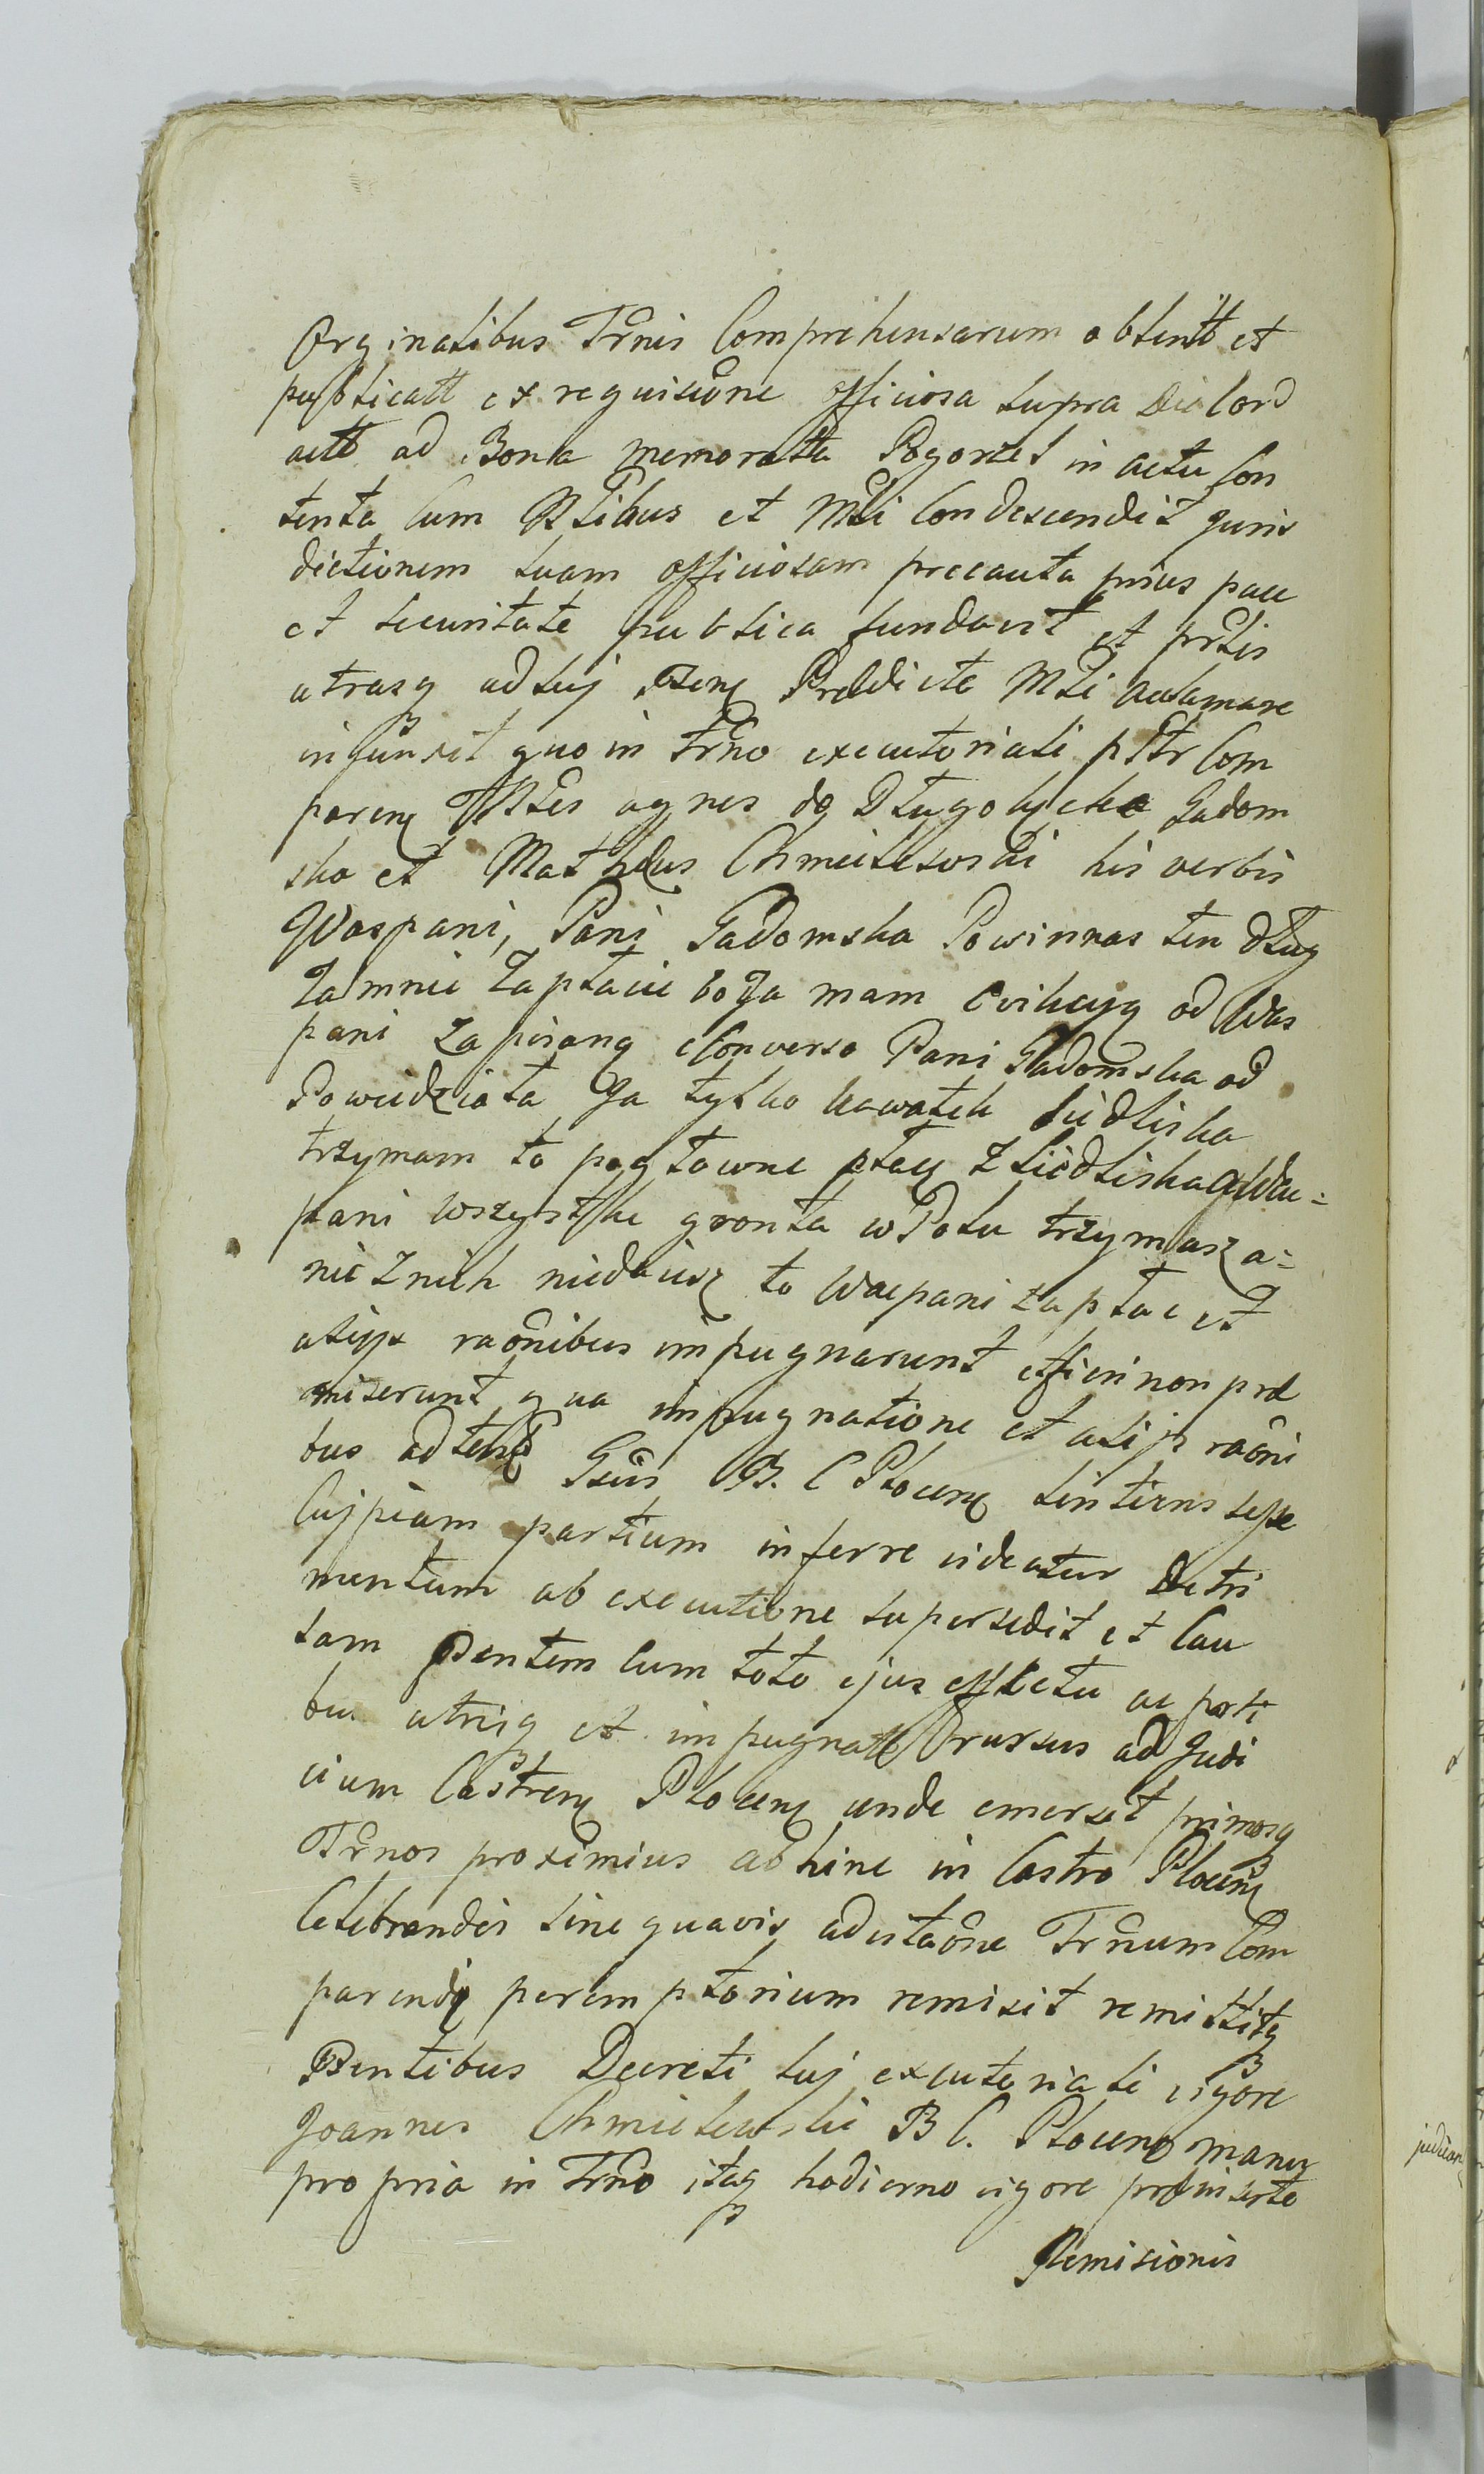 Orginalibus Trnis Comprehensarum obtentt et
publicatt ex requisitione officiosa supra Die Cord
actt ad Bona memoratta Pogorzel in actu Con
tenta Cum Ptibus et Msti Condescendit Juris
dictionem suam officiosam precauta prius pace
et securitate publica fundavit et prtis
utrasq ad suj psene Preedicte Msti aclamare
injunxit quo in trno executoriali pstr Com
paren Ptes agnes de Długołęcka Gadom
ska et Mathæus Chmielewski his verbis
Waspani, Pani Gadomska Powinnas ten dług
Zamnie Zapłacic bo Ja mam Evikcyą od Was
pani Zapisaną e Converso Pani Gadomska od
Powiedziała Ja tylko kawałek Siedliska
trzymam to pogłowne płacę z Siedliska a Wac=
pani wszystkie gronta w Polu trzymasz a=
nic z nich niedaiesz to Wacpani zapłac et
alijs raōnibus impugnarunt effici non præ
miserunt qua impugnatione et alijs raōni
bus adtent Gsus B. C Plocens sentiens sese
Cujpiam partium inferre videatur Detri
mentum ab executione supersedit et Cau
sam Psentem Cum toto ejus effectu ac parti
bus utrisq et impugnatt rursus ad Judi
cium Castren Plocens unde emersit primosq
Trnos proximius abhinc in Castro Plocens
Celebrandos sine quavis adcitaōne Trnum Com
parendi peremptorium remisit remittitq
Psentibus Decreti suj executoriali vigore
Joannes Chmielewski B C. Plocens manu
propria in Trno itaq hodierno vigore preinserte
Remisionis
judican